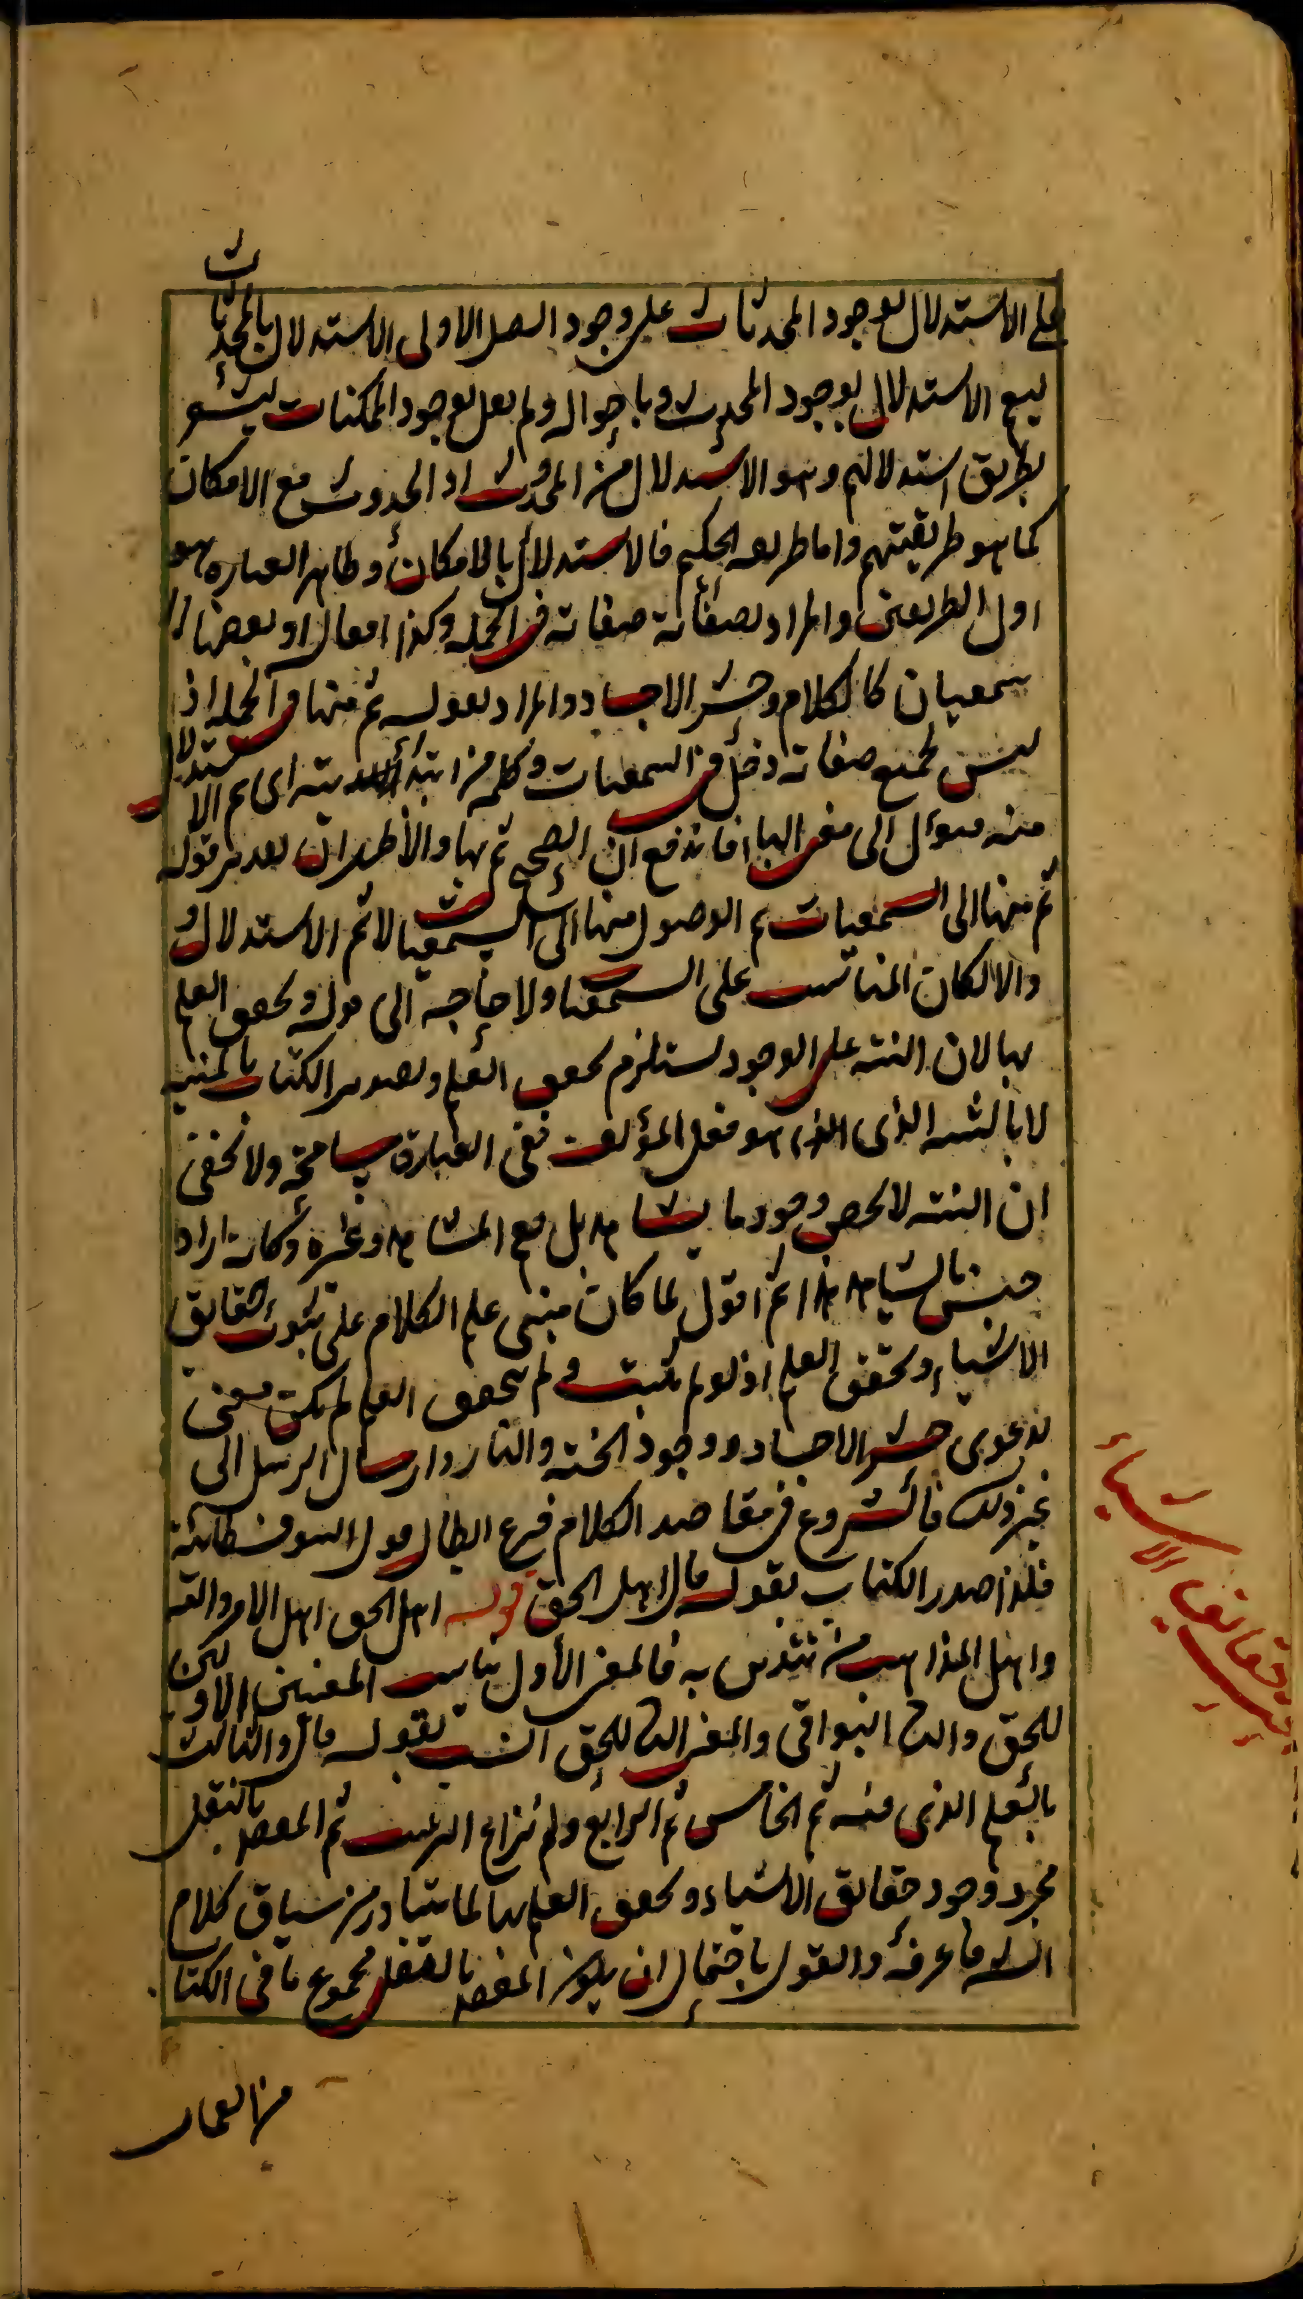 على الاستدلال بوجود المحدثات على وجود الصانع الاولى الاستدلال بالمحدثات
ليعم الاستدلال بوجود المحدث وباحواله ولم يقل بوجود الممكنات ليشعر
بطريق استدلالهم وهو الاستدلال من الحدوث او الحدوث مع الامكان
كما هو طريقتهم واما طريقه الحكيم فالاستدلال بالامكان وظاهر العباره هو
اول الطريقين والمراد بصفاته صفاته في الجمله وكذا افعال او بعضها
سمعيان كالكلام وحشر الاجساد والمراد بقوله ثم منها في الجمله اذ
ليس لجميع صفاته دخل في السمعيات وكلمة من ابتدائية اى ثم الاستدلال
منه فيؤل الى معنى الباء فاندفع ان الصحيح ثم بها والاظهر ان قوله
ثم منها الى السمعيات ثم الوصول منها الى السمعيات لا ثم الاستدلال
والا لكان المناسب على السمعيات ولا حاجه الى قوله وتحقق العلم
بها لان التنبيه على الوجود يستلزم تحقق العلم وتصدير الكتاب بالتنبيه
لا بالتنبيه الذى هو فعل المؤلف ففى العبارة مسامحة ولا يخفى
ان التنبيه لا يخص وجود ما يشاهد بل يعم المشاهد وغيره وكانه اراد
جنس ما يشاهد هذا ثم اقول لما كان مبنى علم الكلام على ثبوت حقايق
الاشياء وتحقق العلم اذ لو لم يثبت ولم يتحقق العلم لم يكن معنى
لدعوى حشر الاجساد ووجود الجنه والنار وارسال الرسل الى
غير ذلك فالشروع في مقاصد الكلام فرع ابطال قول السوفسطائية
فلذا صدر الكتاب بقوله قال اهل الحق قوله اهل الحق اهل الامر والقه
واهل المذاهب من يتدين به فالمعنى الاول يناسب المعنيين الاولين
للحق والثانى البواقى والمعنى الثانى للحق انسب بقوله قال والثالث
بالعلم الذى فيه ثم الخامس ثم الرابع ولم نراع الترتيب ثم المقصد بالنقل
مجرد وجود حقايق الاشياء وتحقق العلم بها لما يتبادر من سياق كلام
الشه ما عرفه والقول باحتمال ان يكون المقصد بالنقل مجموع ما فى الكتا
من العما
حقائق الاشياء